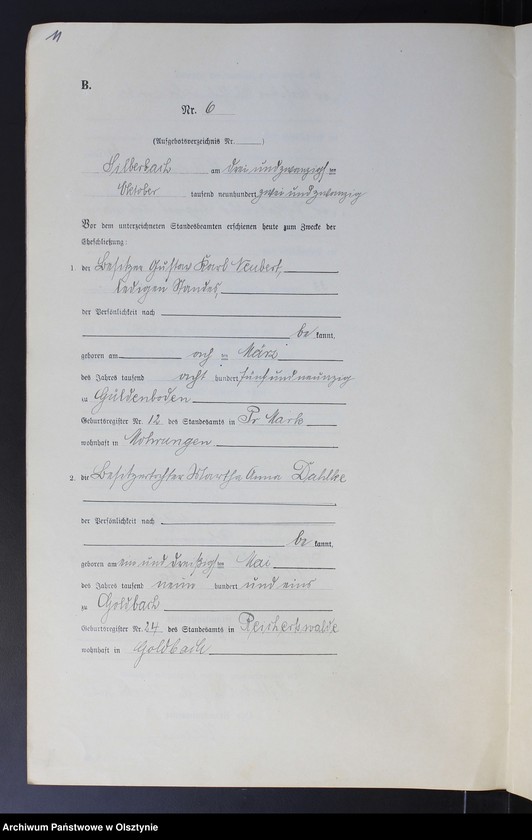 11
B.
Nr. 6
(Aufgebotsverzeichnis Nr.        )
Silberbach am drei undzwanzigsten
Oktober tausend neunhundert zwei und zwanzig
Vor dem unterzeichneten Standesbeamten erschienen heute zum Zwecke der
Eheschließung:
1. der Besitzer Gustav Karl Neubert,
ledigen Standes,
der Persönlichkeit nach
be kannt,
geboren am ten März
des Jahres tausend acht hundert fünf und neunzig
zu Güldenboden
Geburtsregister Nr. 12 des Standesamts in Pr Mark
wohnhaft in Mohrungen
2. die Besitzertochter Martha Anna Dahlke
der Persönlichkeit nach
be kannt,
geboren am ein und dreißigsten Mai
des Jahres tausend neun hundert und eins
zu Goldbach
Geburtsregister Nr. 24 des Standesamts in Reichertswalde
wohnhaft in Goldbach
Archiwum Państwowe w Olsztynie